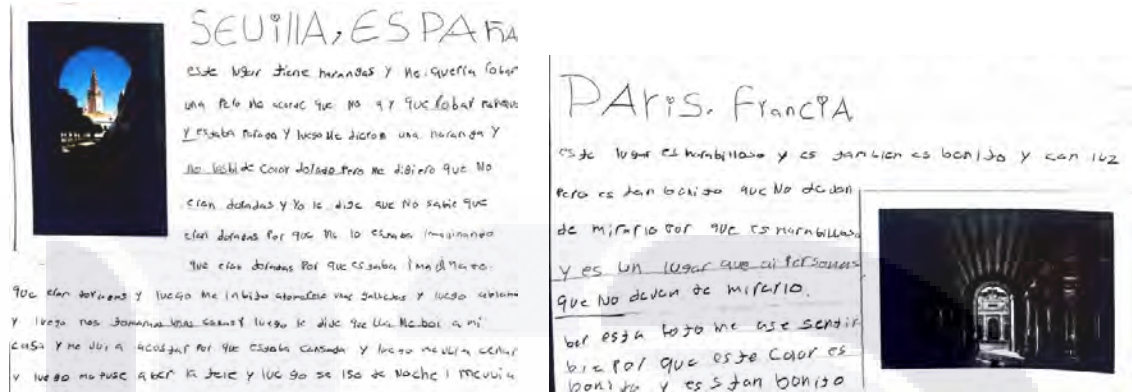 SEUillA, ESPAñA
este lugar tiene narangas y me queria robar
una pero me acorde que no ay que robar
y estaba parada y luego me dieron una naranga y
no la bi de color dolado pero me digiero que No
eran doladas y yo le dige que No sabie que
eran doladas Por que me lo estaba imaginando
que eran doladas Por que estaba
que eran y luego me y luego
y luego nos tomamos unas y luego le dige que me boi a mi
casa y me vui a acostar Por que estaba cansada y luego me vui a cenar
y luego me puse a ber la tele y luego se iso de Noche i me vui a
PAriS. FranciA
este lugar es marabilloso y es tambien es bonito y con luz
Pero es tan bonito que No deven
de mirarlo por que es marabilloso
y es un lugar que ai Personas
que No deven de mirarlo.
ber esta foto me ase sentir
bie Por que este color es
bonito y es tan bonito